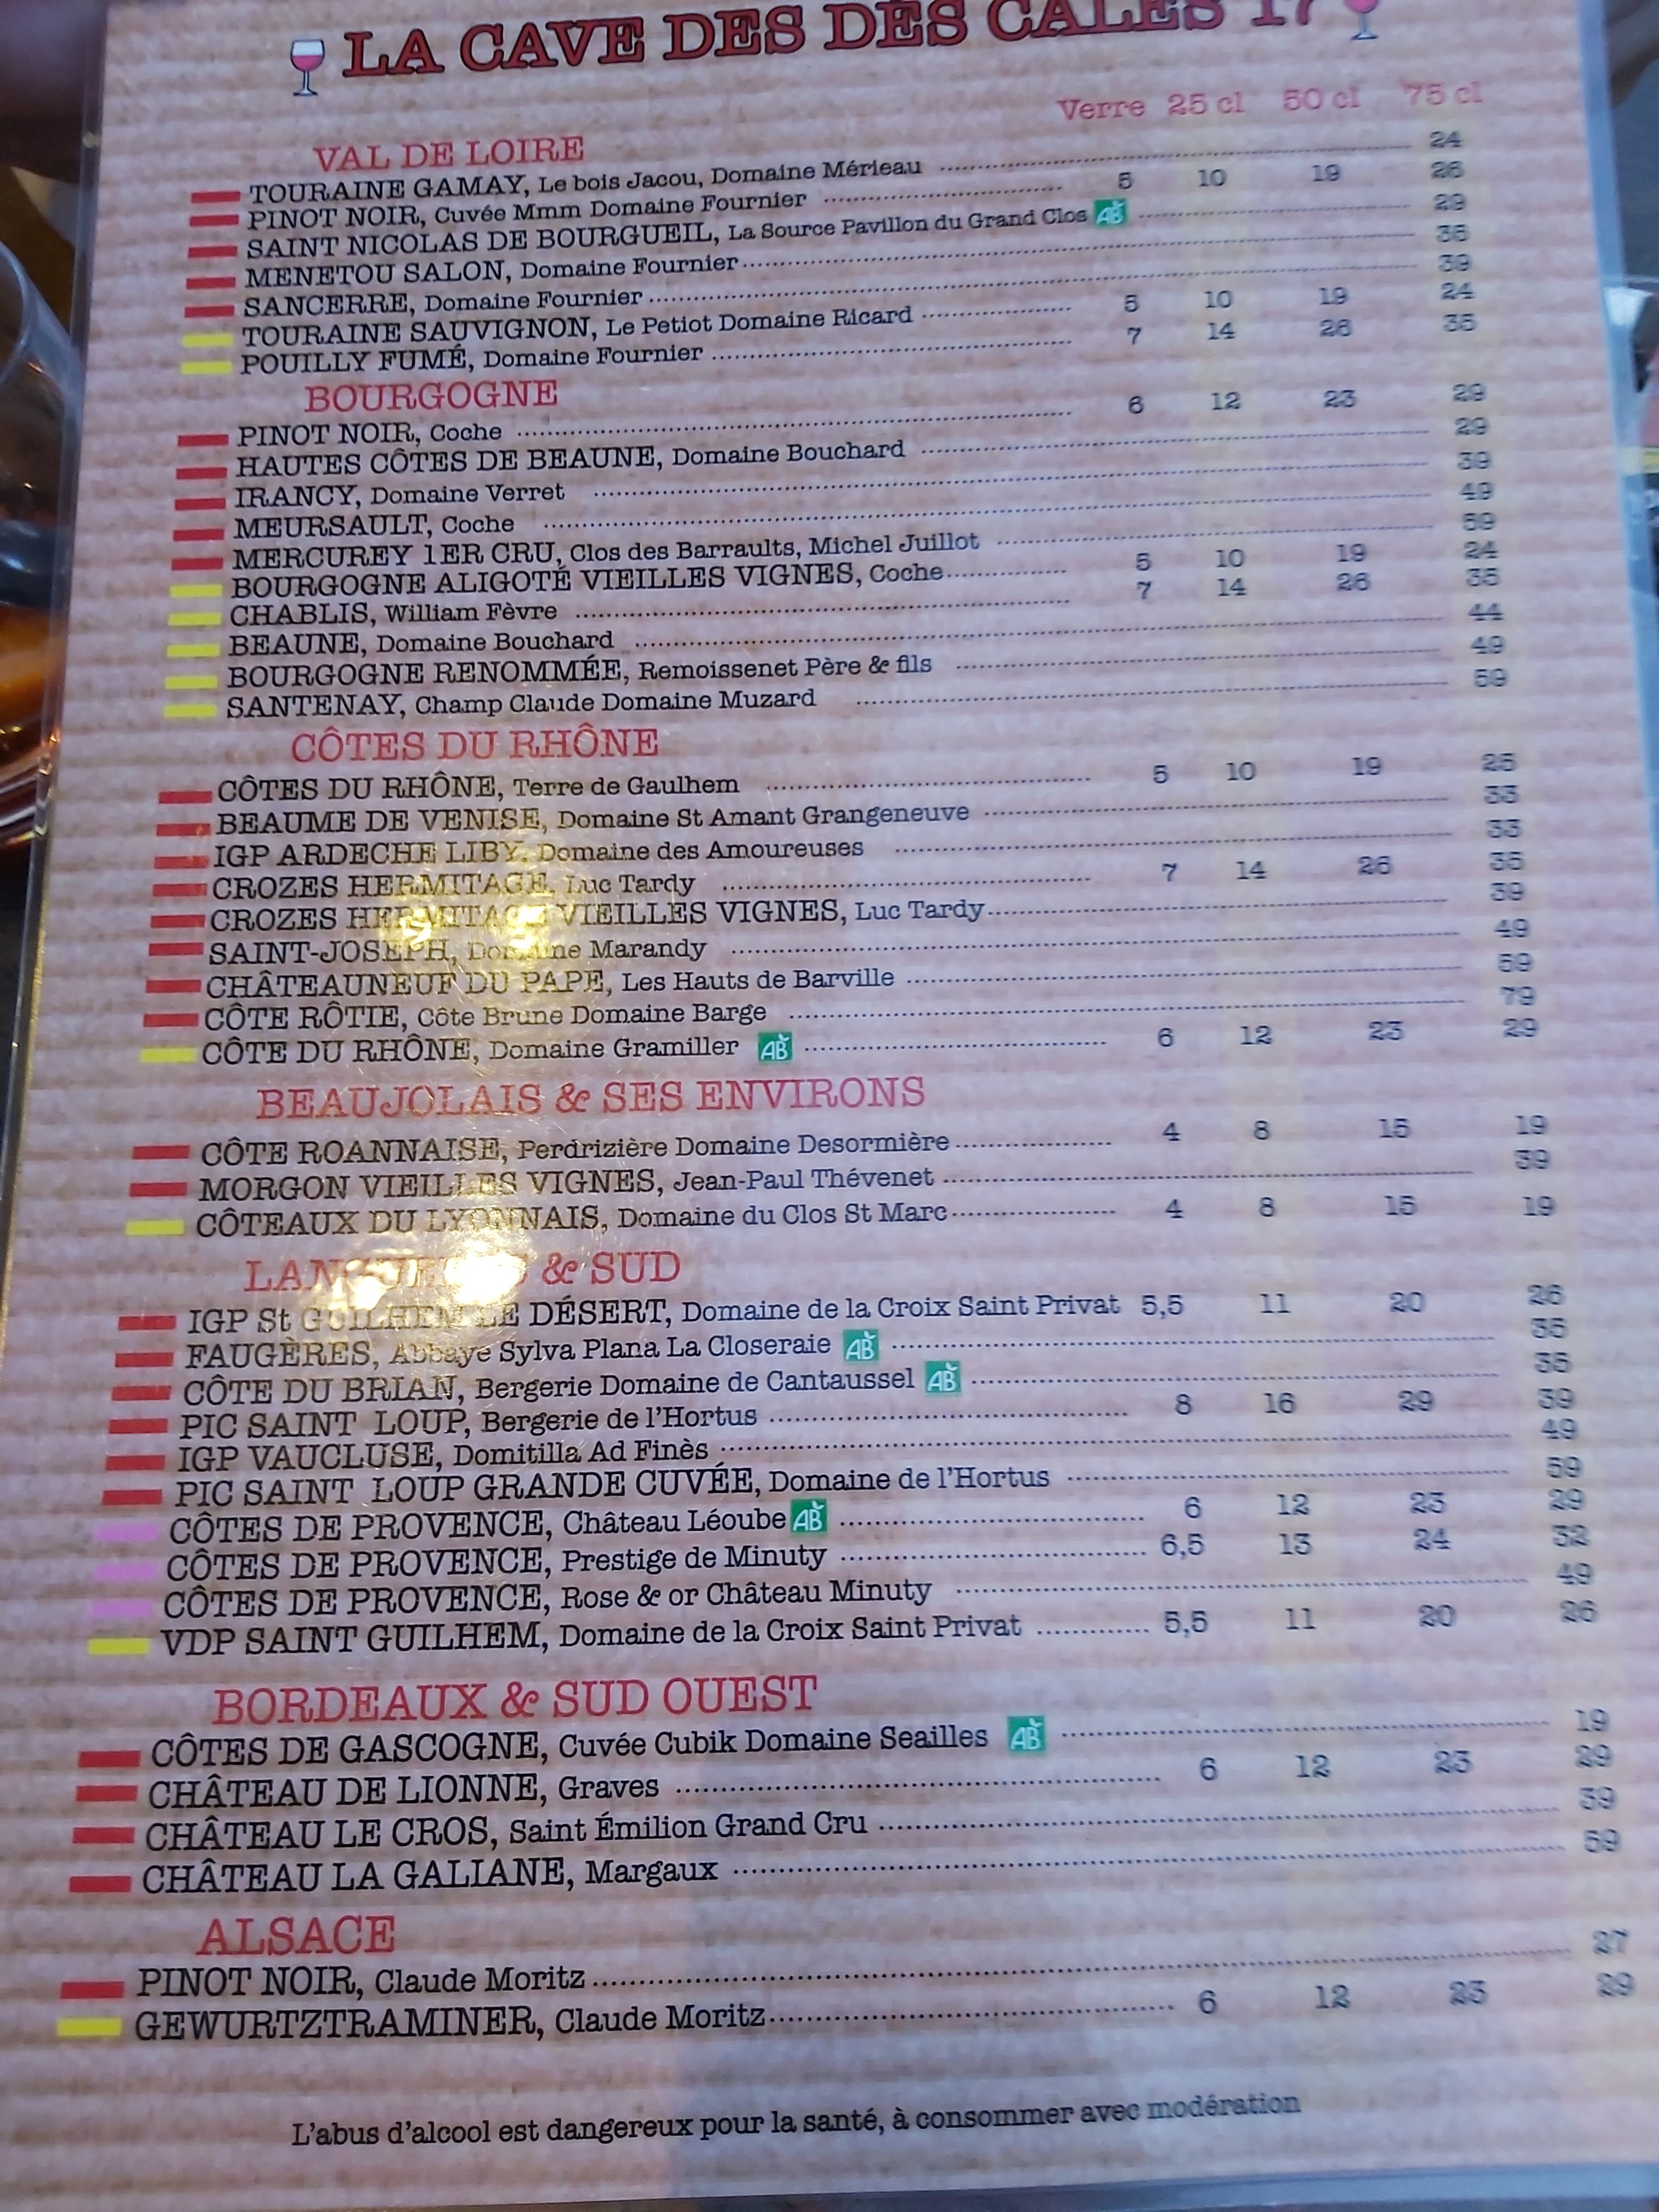 LA CAVE DES DÉS CALÉS 17
Verre 25 cl 50 cl 75 cl
VAL DE LOIRE
TOURAINE GAMAY, Le bois Jacou, Domaine Mérieau 24
PINOT NOIR, Cuvée Mmm Domaine Fournier 5 10 19 26
SAINT NICOLAS DE BOURGUEIL, La Source Pavillon du Grand Clos AB 29
MENETOU SALON, Domaine Fournier 35
SANCERRE, Domaine Fournier 39
TOURAINE SAUVIGNON, Le Petiot Domaine Ricard 5 10 19 24
POUILLY FUMÉ, Domaine Fournier 7 14 26 35
BOURGOGNE
PINOT NOIR, Coche 6 12 23 29
HAUTES CÔTES DE BEAUNE, Domaine Bouchard 29
IRANCY, Domaine Verret 39
MEURSAULT, Coche 49
MERCUREY 1ER CRU, Clos des Barraults, Michel Juillot 59
BOURGOGNE ALIGOTÉ VIEILLES VIGNES, Coche 5 10 19 24
CHABLIS, William Fèvre 7 14 26 35
BEAUNE, Domaine Bouchard 44
BOURGOGNE RENOMMÉE, Remoissenet Père & fils 49
SANTENAY, Champ Claude Domaine Muzard 59
CÔTES DU RHÔNE
CÔTES DU RHÔNE, Terre de Gaulhem 5 10 19 25
BEAUME DE VENISE, Domaine St Amant Grangeneuve 33
IGP ARDECHE LIBY, Domaine des Amoureuses 33
CROZES HERMITAGE, Luc Tardy 7 14 26 35
CROZES HERMITAGE VIEILLES VIGNES, Luc Tardy 39
SAINT-JOSEPH, Domaine Marandy 49
CHÂTEAUNEUF DU PAPE, Les Hauts de Barville 59
CÔTE RÔTIE, Côte Brune Domaine Barge 79
CÔTE DU RHÔNE, Domaine Gramiller AB 6 12 23 29
BEAUJOLAIS & SES ENVIRONS
CÔTE ROANNAISE, Perdrizière Domaine Desormière 4 8 15 19
MORGON VIEILLES VIGNES, Jean-Paul Thévenet 39
CÔTEAUX DU LYONNAIS, Domaine du Clos St Marc 4 8 15 19
& SUD
IGP St GUILHEM LE DÉSERT, Domaine de la Croix Saint Privat 5,5 11 20 26
FAUGÈRES, Abbaye Sylva Plana La Closeraie AB 35
CÔTE DU BRIAN, Bergerie Domaine de Cantaussel AB 35
PIC SAINT LOUP, Bergerie de l'Hortus 8 16 29 39
IGP VAUCLUSE, Domitilla Ad Finès 49
PIC SAINT LOUP GRANDE CUVÉE, Domaine de l'Hortus 59
CÔTES DE PROVENCE, Château Léoube AB 6 12 23 29
CÔTES DE PROVENCE, Prestige de Minuty 6,5 13 24 32
CÔTES DE PROVENCE, Rose & or Château Minuty 49
VDP SAINT GUILHEM, Domaine de la Croix Saint Privat 5,5 11 20 26
BORDEAUX & SUD OUEST
CÔTES DE GASCOGNE, Cuvée Cubik Domaine Seailles AB 19
CHÂTEAU DE LIONNE, Graves 6 12 23 29
CHÂTEAU LE CROS, Saint Émilion Grand Cru 39
CHÂTEAU LA GALIANE, Margaux 59
ALSACE
PINOT NOIR, Claude Moritz 27
GEWURTZTRAMINER, Claude Moritz 6 12 23 29
L'abus d'alcool est dangereux pour la santé, à consommer avec modération